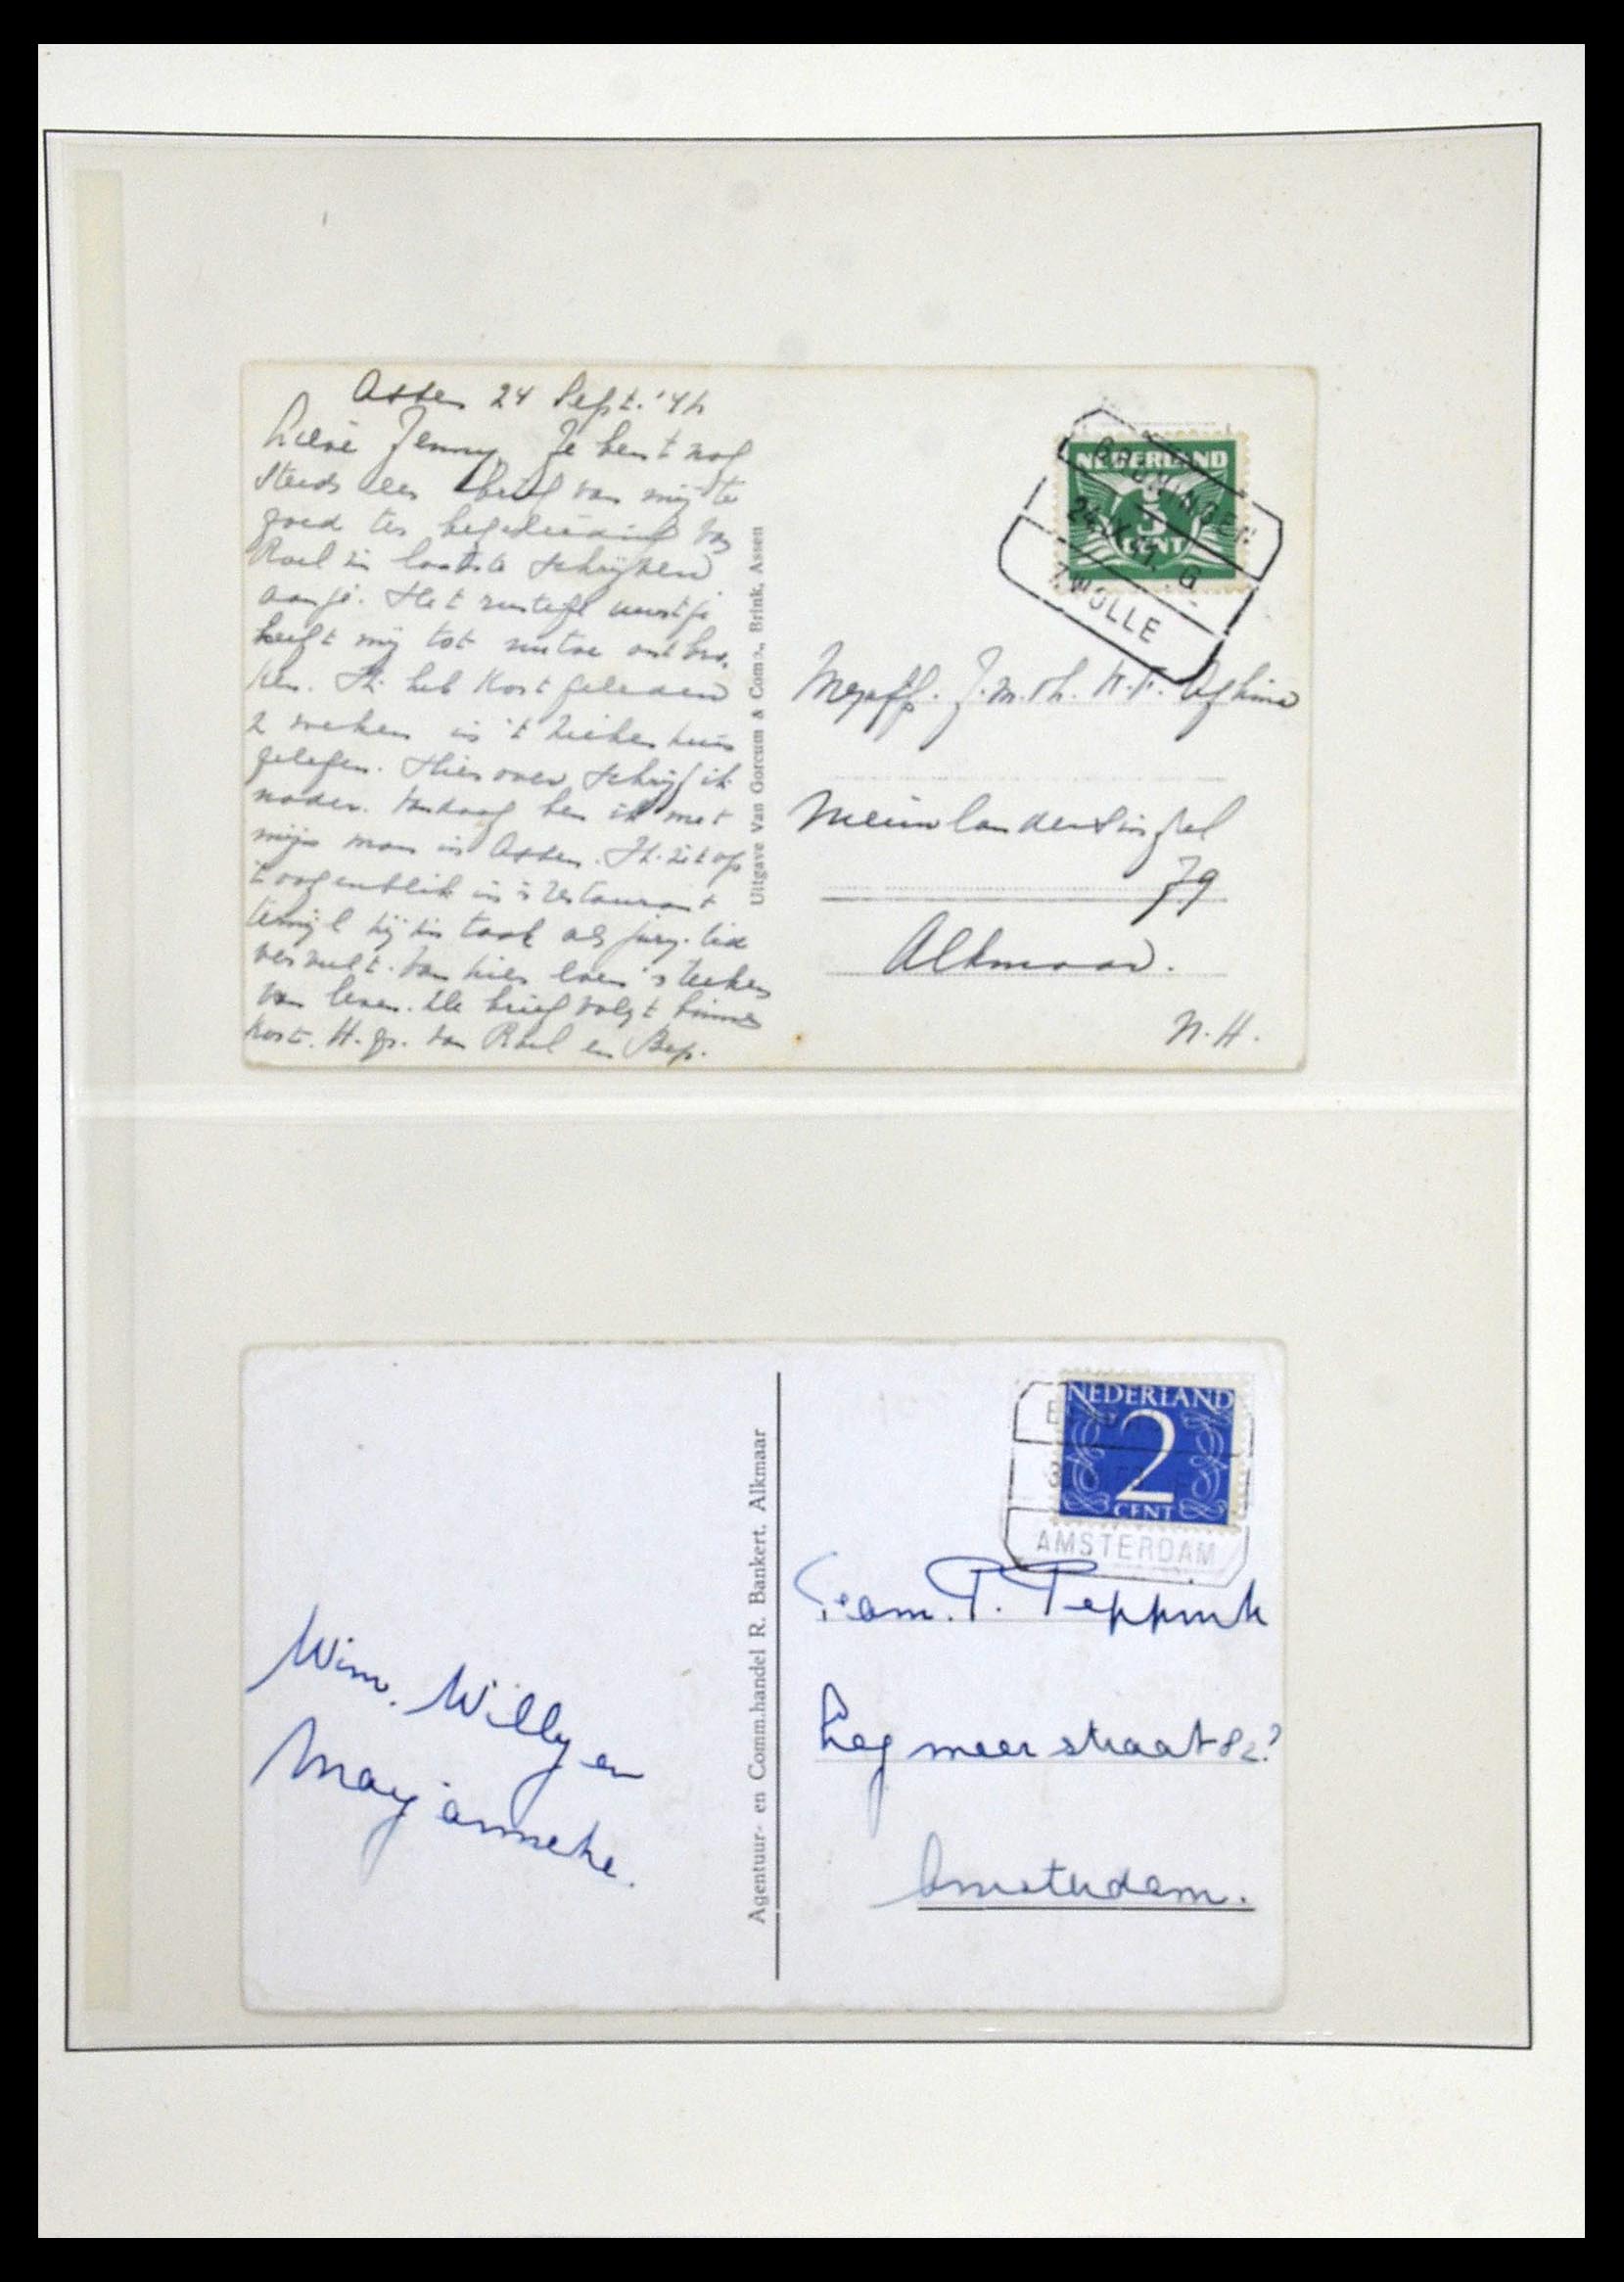 Assen 24 Sept. '41
Lieve Jenny, Je bent nog
steeds een brief van mij te
goed ter begeleiding van
Roel in laatste schrijven
aan je. Het rustige uurtje
heeft mij tot nu toe ontbro-
ken. Ik heb kort geleden
2 weken in 't ziekenhuis
gelegen. Hierover schrijf ik
nader. Vandaag ben ik met
mijn man in Assen. Ik zit op
't oogenblik in 'n restaurant
terwijl hij z'n taak als jury-lid
vervult. Van hier even 'n teeken
van leven. De brief volgt binnen
kort. H. gr. van Roel en Bep.
Uitgave Van Gorcum & Comp., Brink, Assen
NEDERLAND
3
CENT
GRONINGEN
24 IX 41 G
ZWOLLE
Mejuff. J. M. Th. K. F.
Nieuwlandersingel
79
Alkmaar.
N.H.
Wim, Willy en
Marjanneke.
Agentuur- en Comm.handel R. Bankert, Alkmaar
NEDERLAND
2
CENT
AMSTERDAM
Fam. P. Peppink
Legmeerstraat 82?
Amsterdam.